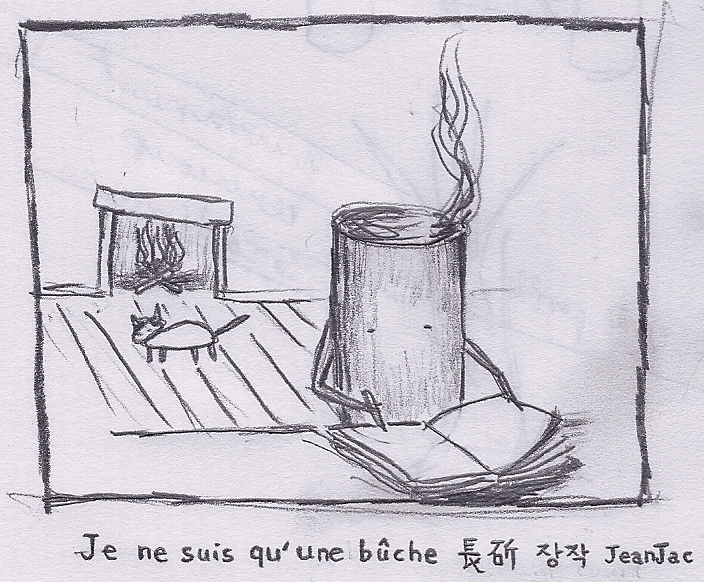 Je ne suis qu'une bûche 長斫 장작 JeanJac